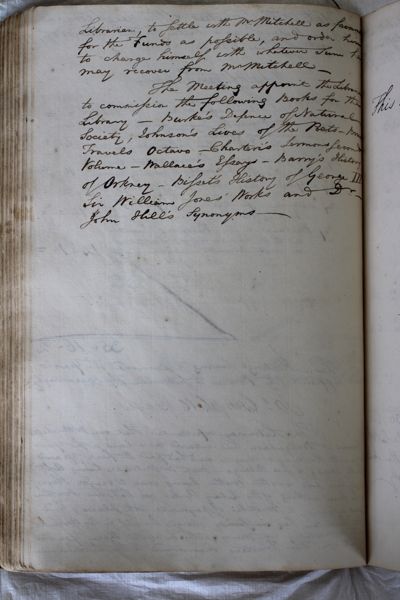 Librarian, to settle with Mr Mitchell as
for the Funds as possible, and order him
to charge himself with whatever Sum he
may recover from Mr Mitchell —
The Meeting appoint the
to commission the following Books for the
Library — Burke's Defence of Natural
Society, Johnson's Lives of the Poets —
Travels Octavo — Charteris Sermons
Volume — Wallace's Essays — Barry's History
of Orkney — Bisset's History of George III
Sir William Jones' Works and Dr
John Hill's Synonyms —
This